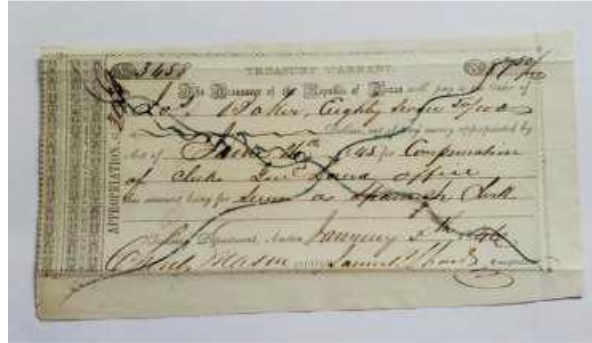 3458 TREASURY WARRANT. 87 50/100
The Treasurer of the Republic of Texas will pay to the Order of
Baker, Eighty Seven 50/100
Dollars, out of any money appropriated by
Act of June 1845 for Compensation
of Clerks Land Office
this amount being for Services as Spanish Clerk
Department, Austin January 5th 1846
APPROPRIATION.